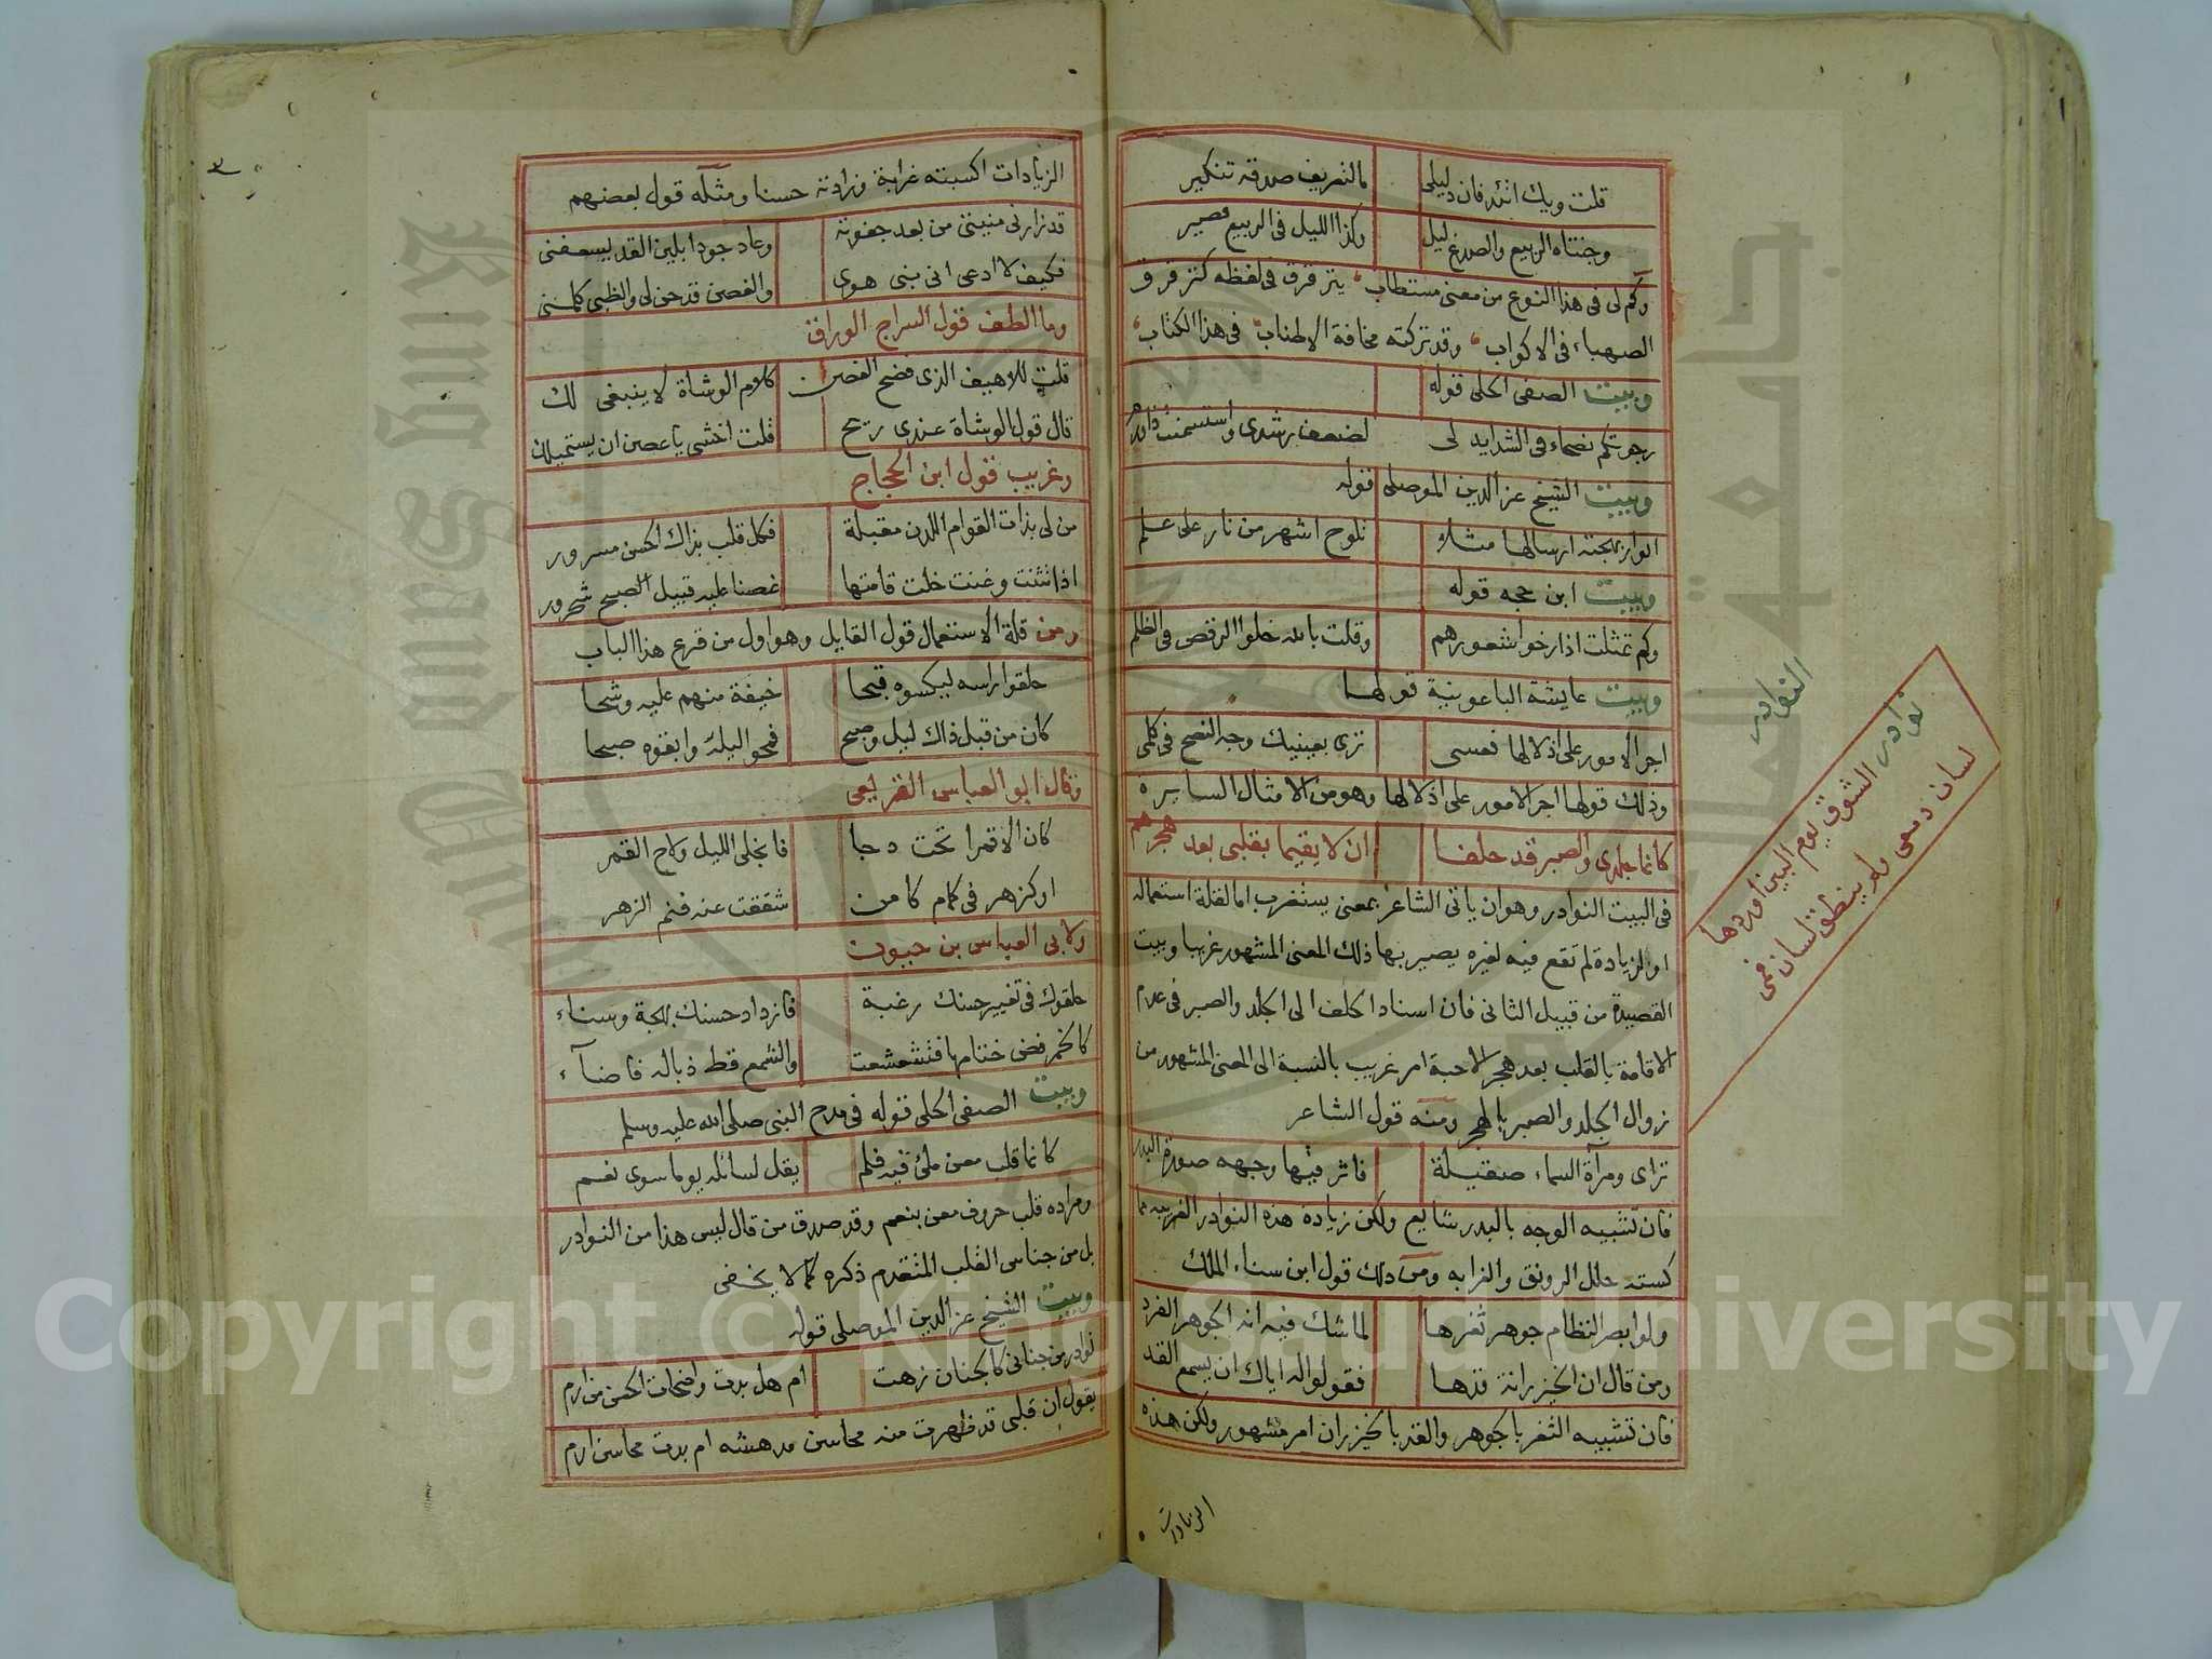 قلت ويك اتئد فان دليلى بالتعريف صدقه تنكير
وجنتاه الربيع والصدغ ليل وكذا الليل فى الربيع قصير
وكم لى فى هذا النوع من معنى مستطاب يترقرق فى لفظه كترقرق
الصهباء فى الاكواب وقد تركته مخافة الاطناب فى هذا الكتاب
وبيت الصفى الحلى قوله
رجوتكم نصحاء فى الشدايد لى لضعف رشدى واستسمنت ذا ورم
وبيت الشيخ عز الدين الموصلى قوله
انوار بهجته ارسالها مثلا تلوح اشهر من نار على علم
وبيت ابن حجه قوله
وكم تمثلت اذا رخوا شعورهم وقلت بالله خلوا الرقص فى الظلم
وبيت عايشة الباعونية قولها
اجر الامور على اذلالها فعسى ترى بعينيك وجه النصح فى كلمى
وذلك قولها اجر الامور على اذلالها وهو من الامثال السايره
كانما جلدى والصبر قد حلفا ان لا يقيما بقلبى بعد هجرهم
فى البيت النوادر وهو ان ياتى الشاعر بمعنى يستغرب اما لقلة استعماله
او لزيادة لم تقع فيه لغيره يصير بها ذلك المعنى المشهور غريبا وبيت
القصيدة من قبيل الثانى فان اسناد الحلف الى الجلد والصبر فى عدم
الاقامة بالقلب بعد هجر الاحبة امر غريب بالنسبة الى المعنى المشهور من
زوال الجلد والصبر بالهجر ومنه قول الشاعر
ترأى ومرآة السماء صقيلة فاثر فيها وجهه صورة البدر
فان تشبيه الوجه بالبدر شايع ولكن زيادة هذه النوادر الغريبه مما
كسته حلل الرونق والغرابه ومن ذلك قول ابن سناء الملك
ولو ابصر النظام جوهر ثغرها لما شك فيه انه الجوهر الفرد
ومن قال ان الخيزرانة قدها فقولوا له اياك ان يسمع القد
فان تشبيه الثغر بالجوهر والقد بالخيزران امر مشهور ولكن هذه
الزيادات
النوادر
نوادر الشوق يوم البين اوردها
لسان دمعى ولم ينطق لسان فمى
الزيادات اكسبته غرابة وزادته حسنا ومثله قول بعضهم
قد زارنى منيتى من بعد جفوته وعاد جودا بلين القد يسعفنى
فكيف لا ادعى انى بنى هوى والغصن قد حن لى والظبى كلمنى
وما الطف قول السراج الوراق
قلت للاهيف الذى فضح الغصن كلام الوشاة لا ينبغى لك
قال قول الوشاة عندى ريح قلت اخشى يا غصن ان يستميلك
وغريب قول ابن الحجاج
من لى بذات القوام اللدن مقبلة فكل قلب بذاك الحسن مسرور
اذا تثنت وغنت خلت قامتها غصنا عليه قبيل الصبح شحرور
ومن قلة الاستعمال قول القايل وهو اول من قرع هذا الباب
حلقوا راسه ليكسوه قبحا خيفة منهم عليه وشحا
كان من قبل ذاك ليل وصبح فمحوا ليله وابقوه صبحا
وقال ابو العباس القريعى
كان الا قمرا تحت دجا فانجلى الليل ولاح القمر
او كزهر فى كمام كامن شققت عنه فنم الزهر
ولابى العباس بن حبون
حلقوك فى تغيير حسنك رغبة فازداد حسنك بهجة وسناء
كالخمر فض ختامها فتشعشعت والشمع قط ذباله فاضآء
وبيت الصفى الحلى قوله فى مدح النبى صلى الله عليه وسلم
كانما قلب معن ملئ فيه فلم يقل لسائله يوما سوى نعم
ومراده قلب حروف معن بنعم وقد صدق من قال ليس هذا من النوادر
بل من جناس القلب المتقدم ذكره كما لا يخفى
وبيت الشيخ عز الدين الموصلى قوله
نوادر من جنانى كالجنان زهت ام هل بدت واضحات الحسن من ارم
يقول ان قلبى قد ظهرت منه محاسن مدهشه ام بدت محاسن ارم
Copyright © King Saud University